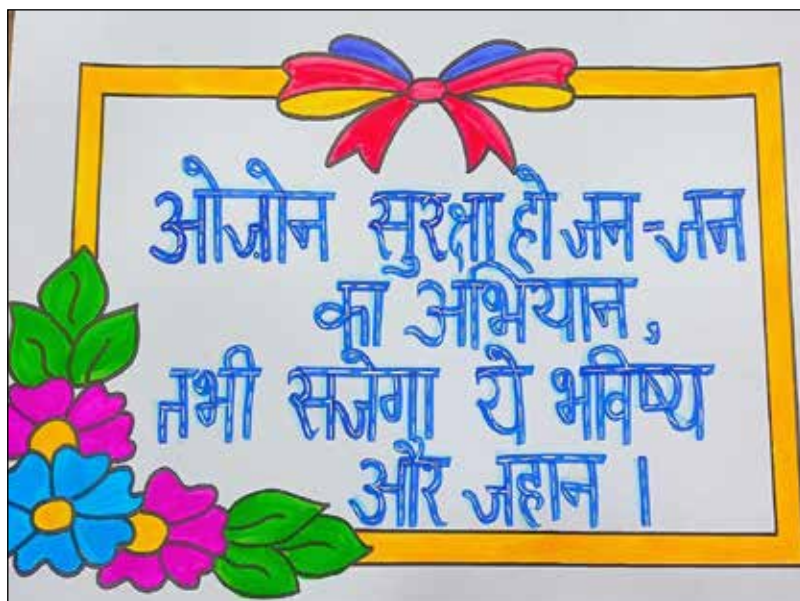 ओज़ोन सुरक्षा हो जन-जन
का अभियान,
तभी सजेगा ये भविष्य
और जहान ।